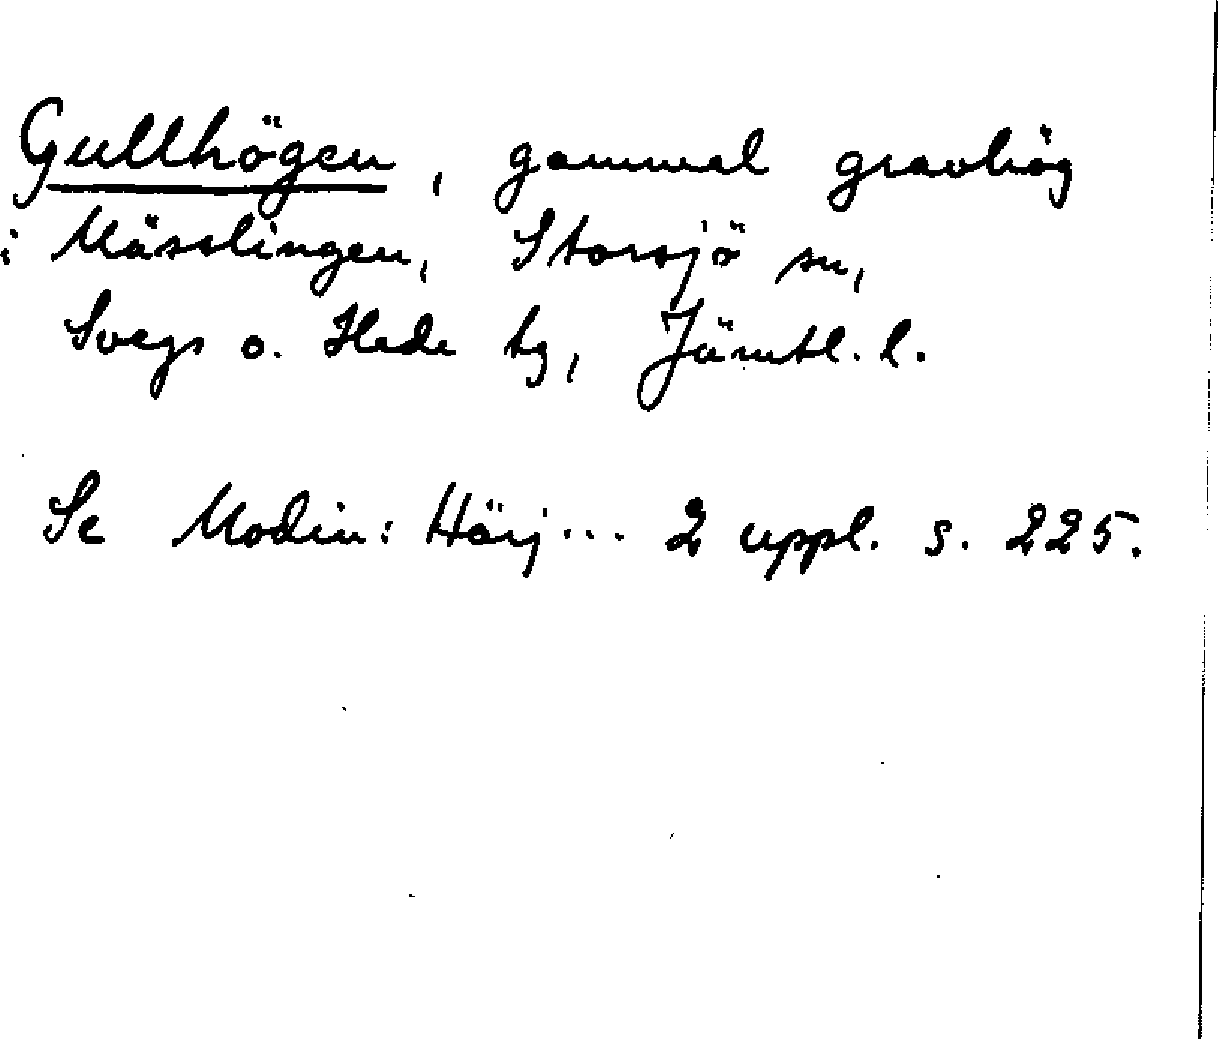 Gullhögen, gammal gravhög
i Mässlingen, Storsjö sn,
Svegs o. Hede tg, Jämtl. l.
Se Modin: Härj... 2 uppl. s. 225.